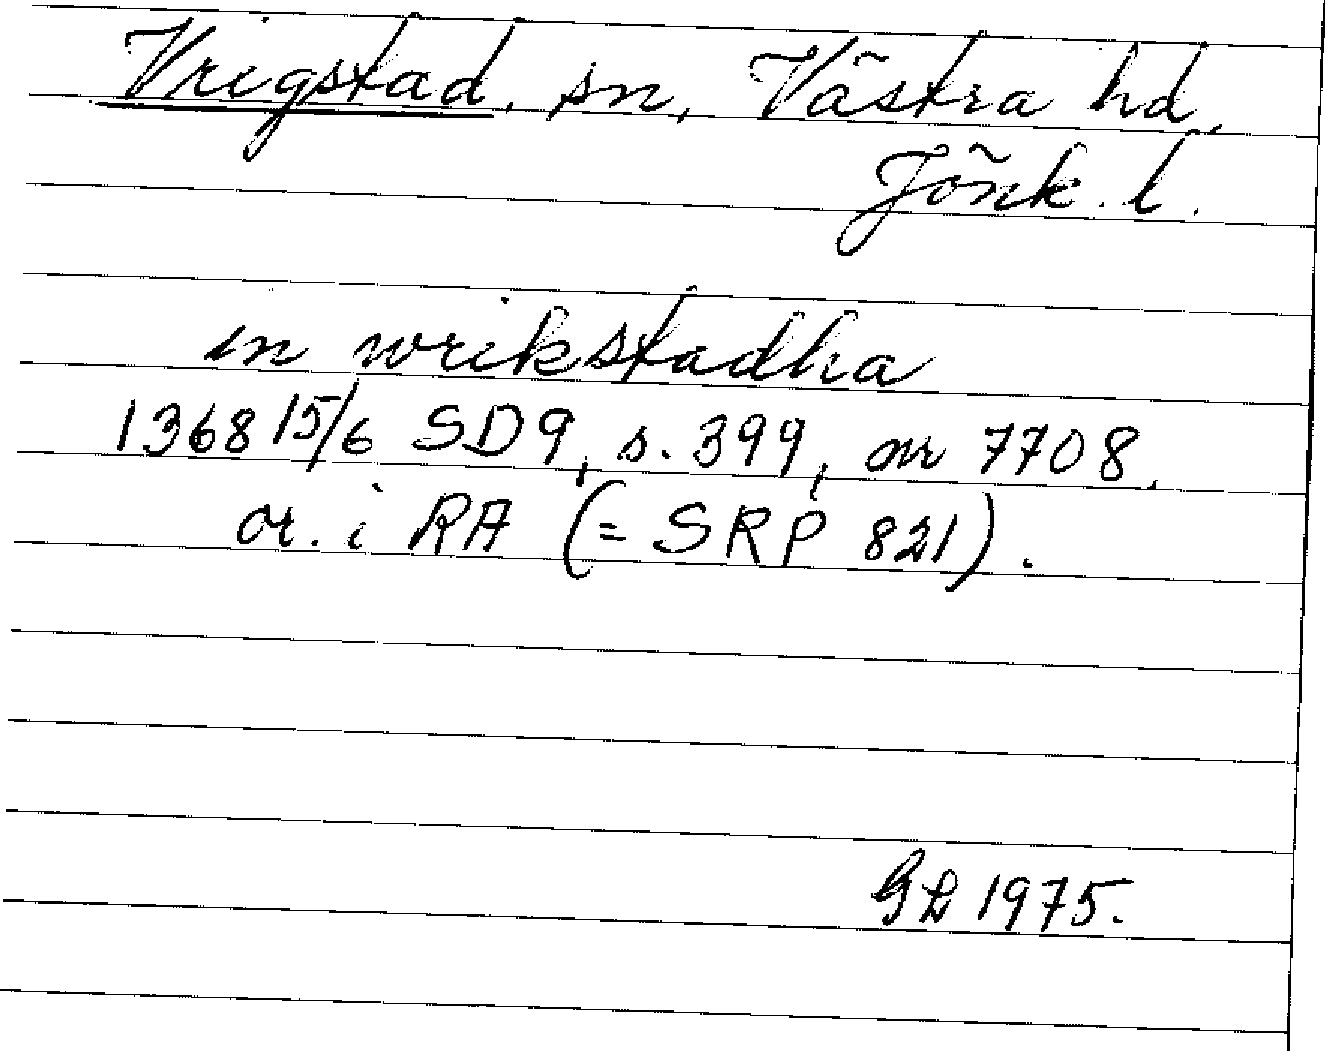 Vrigstad, sn, Västra hd,
Jönk. l.
in wrikstadha
1368 15/6 SD9, s. 399, nr 7708,
or. i RA (= SRP 821).
GL 1975.